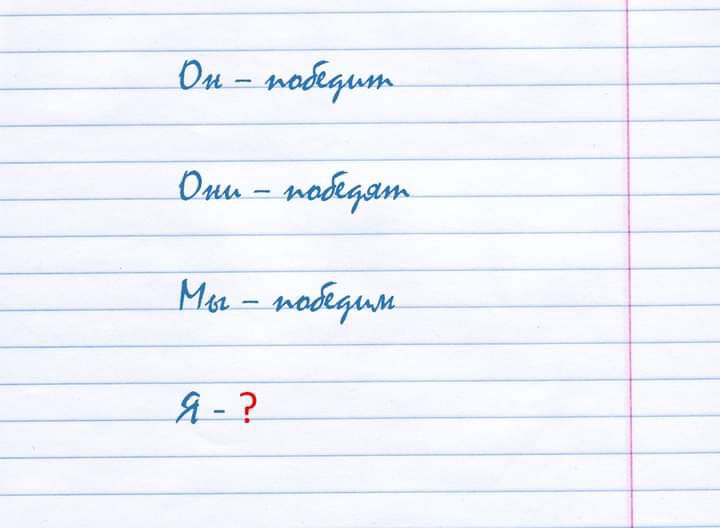 Он – победит
Они – победят
Мы – победим
Я - ?